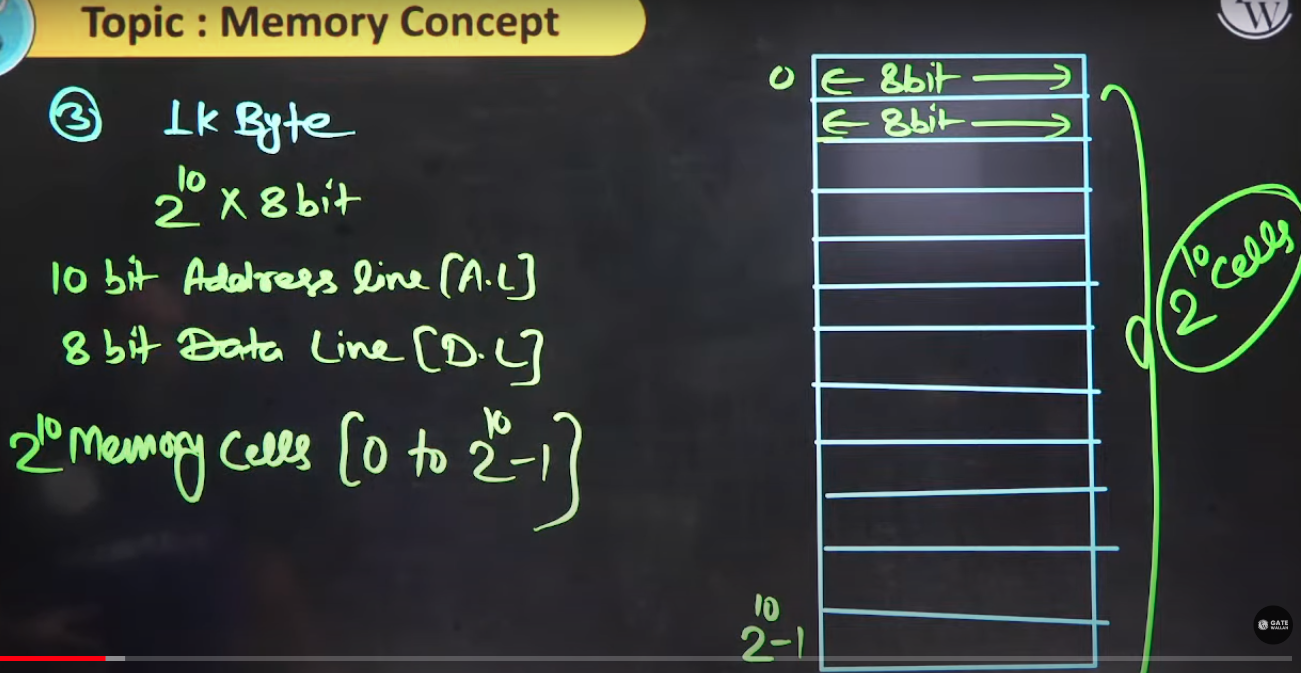 Topic : Memory Concept
W
③ 1k Byte
2^10 X 8 bit
10 bit Address line [A.L]
8 bit Data Line [D.L]
2^10 Memory Cells [0 to 2^10-1]
0 ← 8bit →
← 8bit →
2^10 cells
2^10-1
GATE
WALLAH